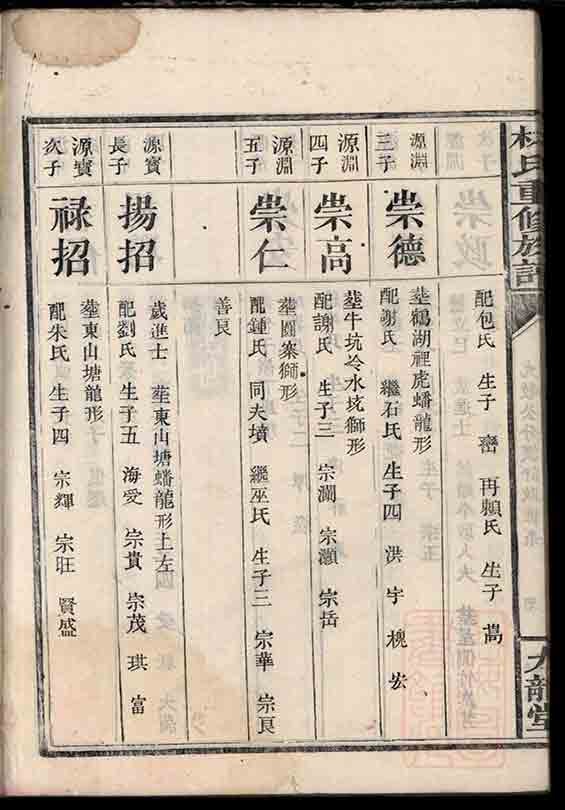 林氏重修族譜
九龍堂
配包氏 生子 㟭 再賴氏 生子 嵩
源淵
三子
崇德
塟鶴湖裡虎蟠龍形
配謝氏 繼石氏 生子四 洪 宇 槐 宏
源淵
四子
崇高
塟牛坑冷水坑獅形
配謝氏 生子三 宗瀾 宗灝 宗岳
源淵
五子
崇仁
塟園寨獅形
配鍾氏 同夫墳 繼巫氏 生子三 宗華 宗良
善良
源寳
長子
揚招
歲進士 塟東山塘蟠龍形上左
配劉氏 生子五 海愛 宗貴 宗茂 琪 富
源寳
次子
禄招
塟東山塘龍形
配朱氏 生子四 宗輝 宗旺 賢盛